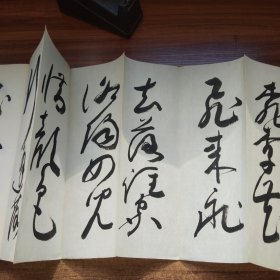 桃李花
飛來飛
去落誰家
洛陽女兒
惜顏色
行逢落